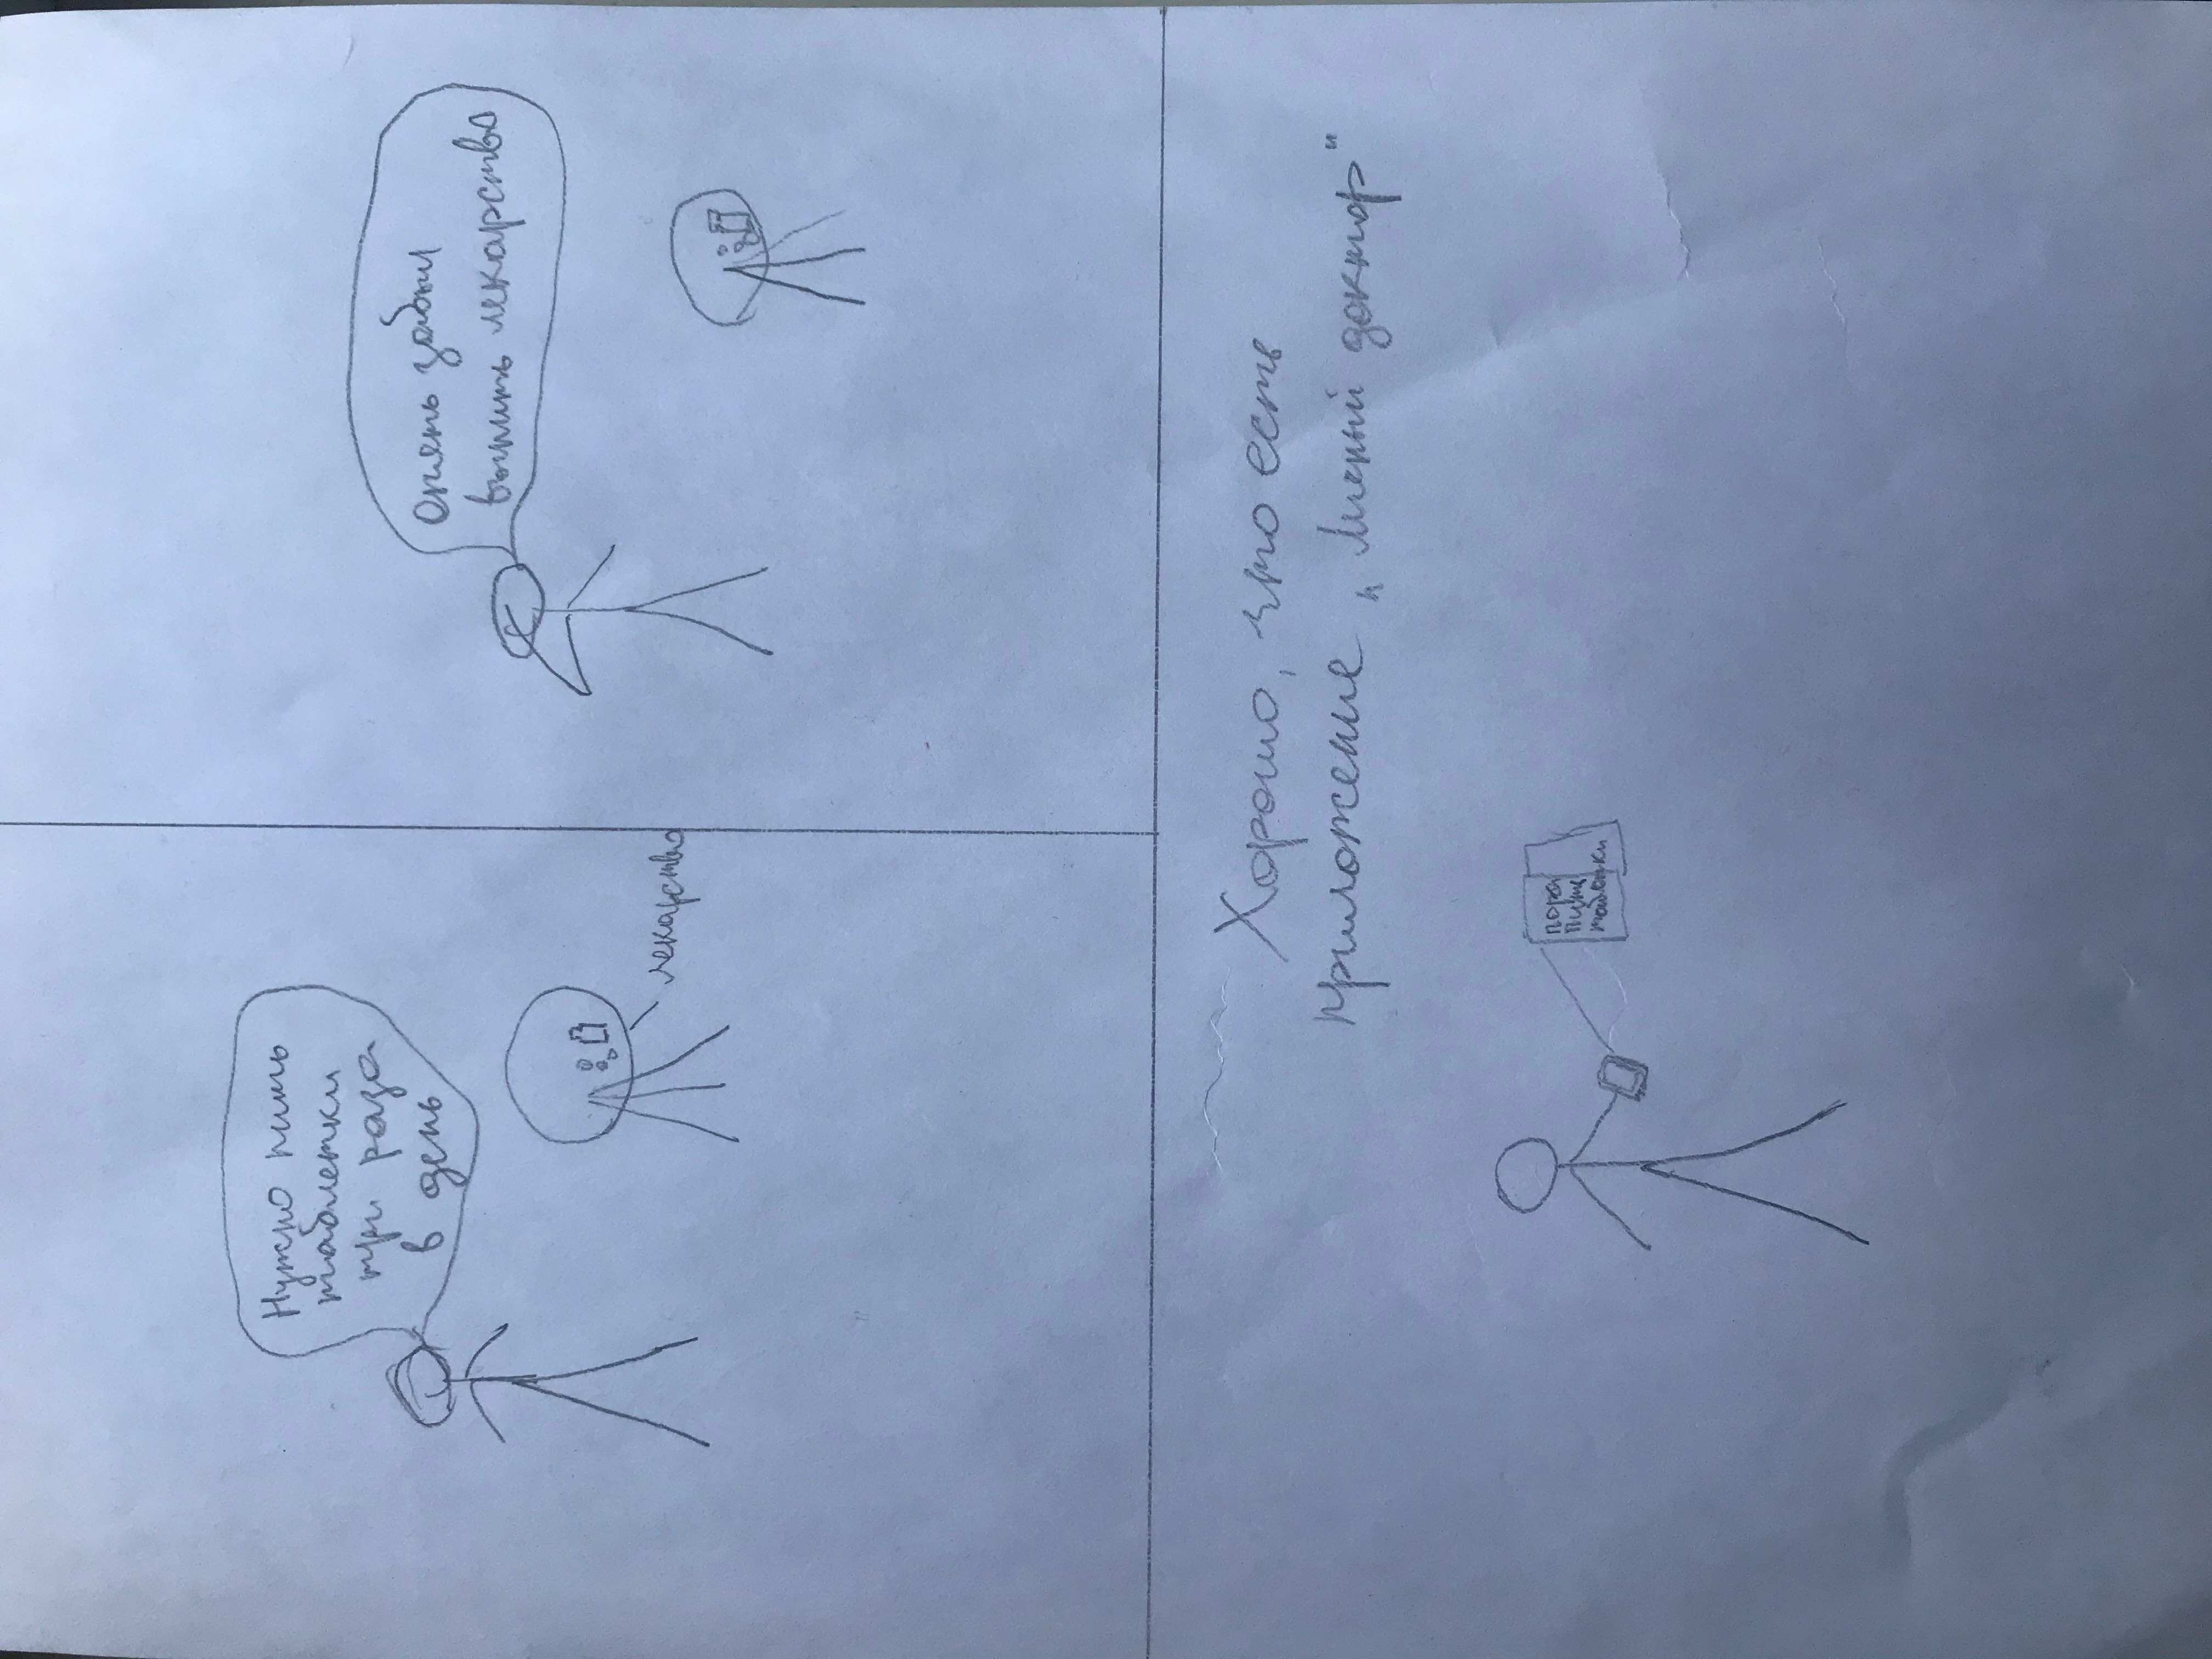 Нужно пить
таблетки
три раза
в день
лекарство
опять забыл
выпить лекарство
Хорошо, что есть
приложение „Личный доктор"
пора
пить
таблетки